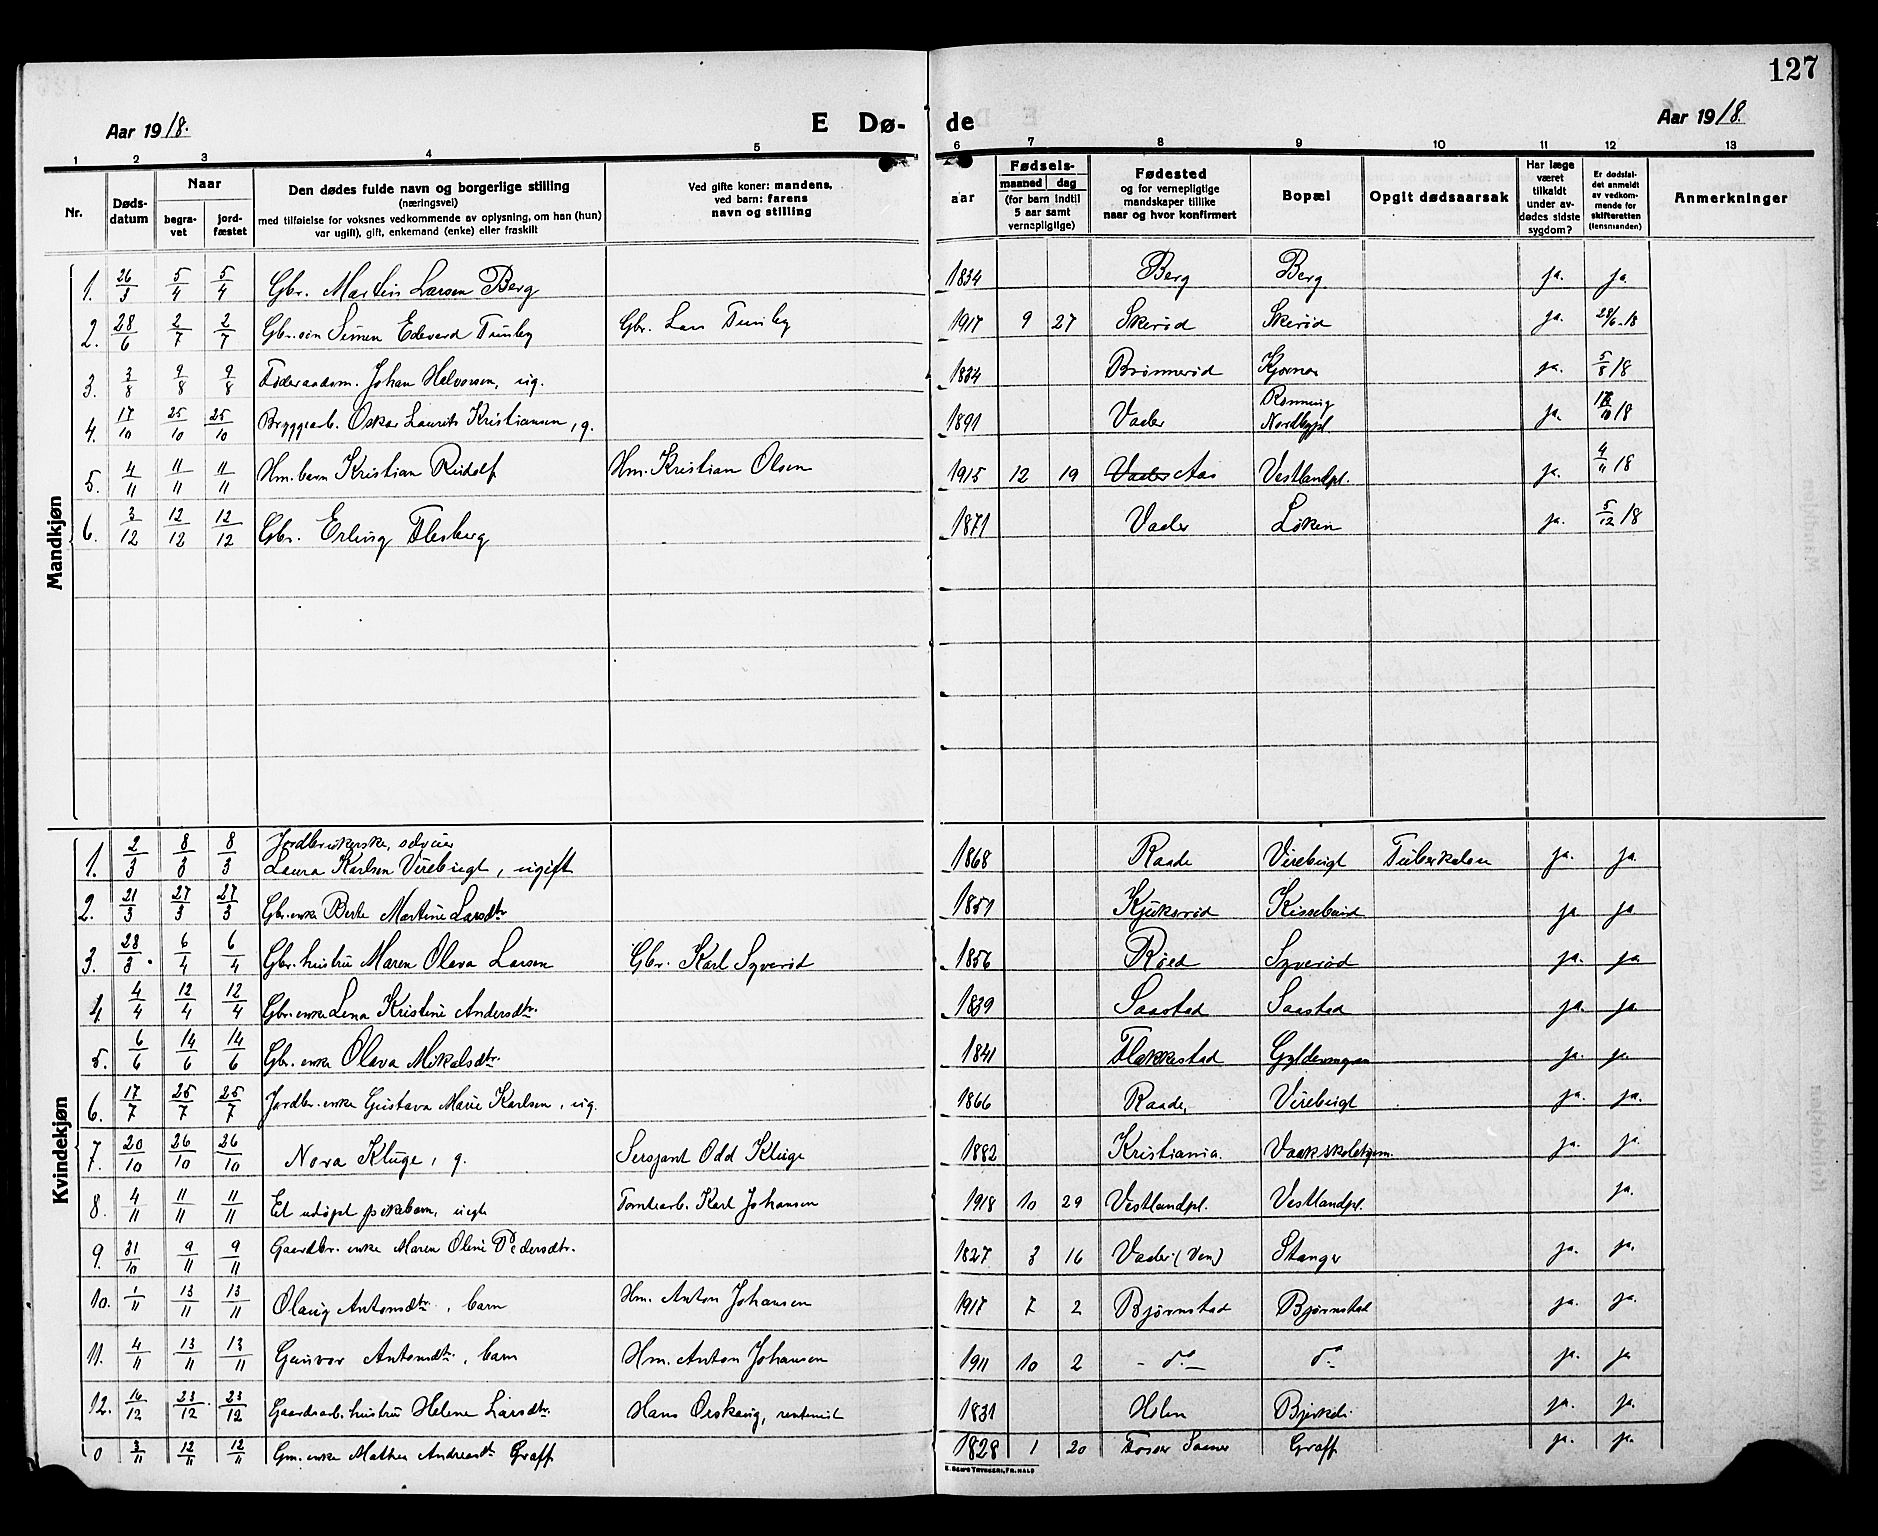 127
Aar 1918.
E Dø-
de
Aar 1918.
1 2 3 4 5 6 7 8 9 10 11 12 13
Nr.
Døds-
datum
Naar
begra-
vet
jord-
fæstet
Den dødes fulde navn og borgerlige stilling
(næringsvei)
med tilføielse for voksnes vedkommende av oplysning, om han (hun)
var ugift, gift, enkemand (enke) eller fraskilt
Ved gifte koner: mandens,
ved barn: farens
navn og stilling
Fødsels-
aar
maaned dag
(for barn indtil
5 aar samt
vernepligtige)
Fødested
og for vernepligtige
mandskaper tillike
naar og hvor konfirmert
Bopæl
Opgit dødsaarsak
Har læge
været
tilkaldt
under av-
dødes sidste
sygdom?
Er dødsfal-
det anmeldt
av vedkom-
mende for
skifteretten
(lensmanden)
Anmerkninger
Mandkjøn
1. 26/3 5/4 5/4 Gbr. Martin Larsen Berg 1834 Berg Berg ja. ja.
2. 28/6 2/7 2/7 Gbr.søn Simen Edevard Tunby Gbr. Lars Tunby 1917 9 27 Skerød Skerød ja. 28/6-18
3. 3/8 9/8 9/8 Føderaadsm. Johan Halvorsen, ug. 1834 Brønnerød Kjernes ja. 5/8 18
4. 17/10 25/10 25/10 Bryggearb. Oskar Laurits Kristiansen, g. 1891 Vaaler Rønning Nordbypl ja. /10 18
5. 4/11 11/11 11/11 Hm. barn Kristian Rudolf Hm. Kristian Olsen 1915 12 19 Vaaler Aas Vestlandpl. ja. 4/11 18
6. 3/12 12/12 12/12 Gbr. Erling Flesberg 1871 Vaaler Løken ja. 5/12 18
Kvindekjøn
1. 2/3 8/3 8/3 Jordbrukerske, selveier
Laura Karlsen Virebugt, ugift 1868 Raade Virebugt Tuberkulose ja. ja.
2. 21/3 27/3 27/3 Gbr. enke Berte Martine Larsdtr 1851 Kjuksrød Kissebund ja ja
3. 28/3 6/4 6/4 Gbr. hustru Maren Olava Larsen Gbr. Karl Syverød 1856 Røed Syverød ja. ja
4 4/4 12/4 12/4 Gbr. enke Lena Kristine Andersdtr. 1839 Saastad Saastad ja. ja.
5. 6/6 14/6 14/6 Gbr. enke Olava Mikalsdtr. 1841 Flakkestad ja. ja.
6. 17/7 25/7 25/7 Jordbr. enke Gustava Marie Karlsen, ug. 1866 Raade, Virebugt ja. ja.
7. 20/10 26/10 26/10 Nora Kluge, g. Sersjant Odd Kluge 1882 Kristiania. ja. ja.
8. 4/11 11/11 11/11 Et udøpt pikebarn, uegte Tomtearb. Karl Johansen 1918 10 29 Vestlandpl. Vestlandpl. ja.
9. 31/10 9/11 9/11 Gaardbr. enke Maren Oline Pedersdtr. 1827 3 16 Vaaler (Ven) Stanger ja. ja.
10. 1/11 13/11 13/11 Olaug Antonsdtr., barn Hm. Anton Johansen 1917 7 2 Bjørnstad Bjørnstad ja. ja.
11. 4/11 13/11 13/11 Gunvor Antonsdtr, barn Hm. Anton Johansen 1911 10 2 - do - do ja. ja
12. 16/12 23/12 23/12 Gaardsarb. hustru Helene Larsdtr. Hans Orskaug, rentenist 1831 Hølen Bjerkeli ja. ja.
0 3/11 12/11 12/11 Gm. enke Mathea Andreasdtr Graff 1828 1 20 Graff ja. ja.
E. SEM'S TRYKKERI, FR.HALD